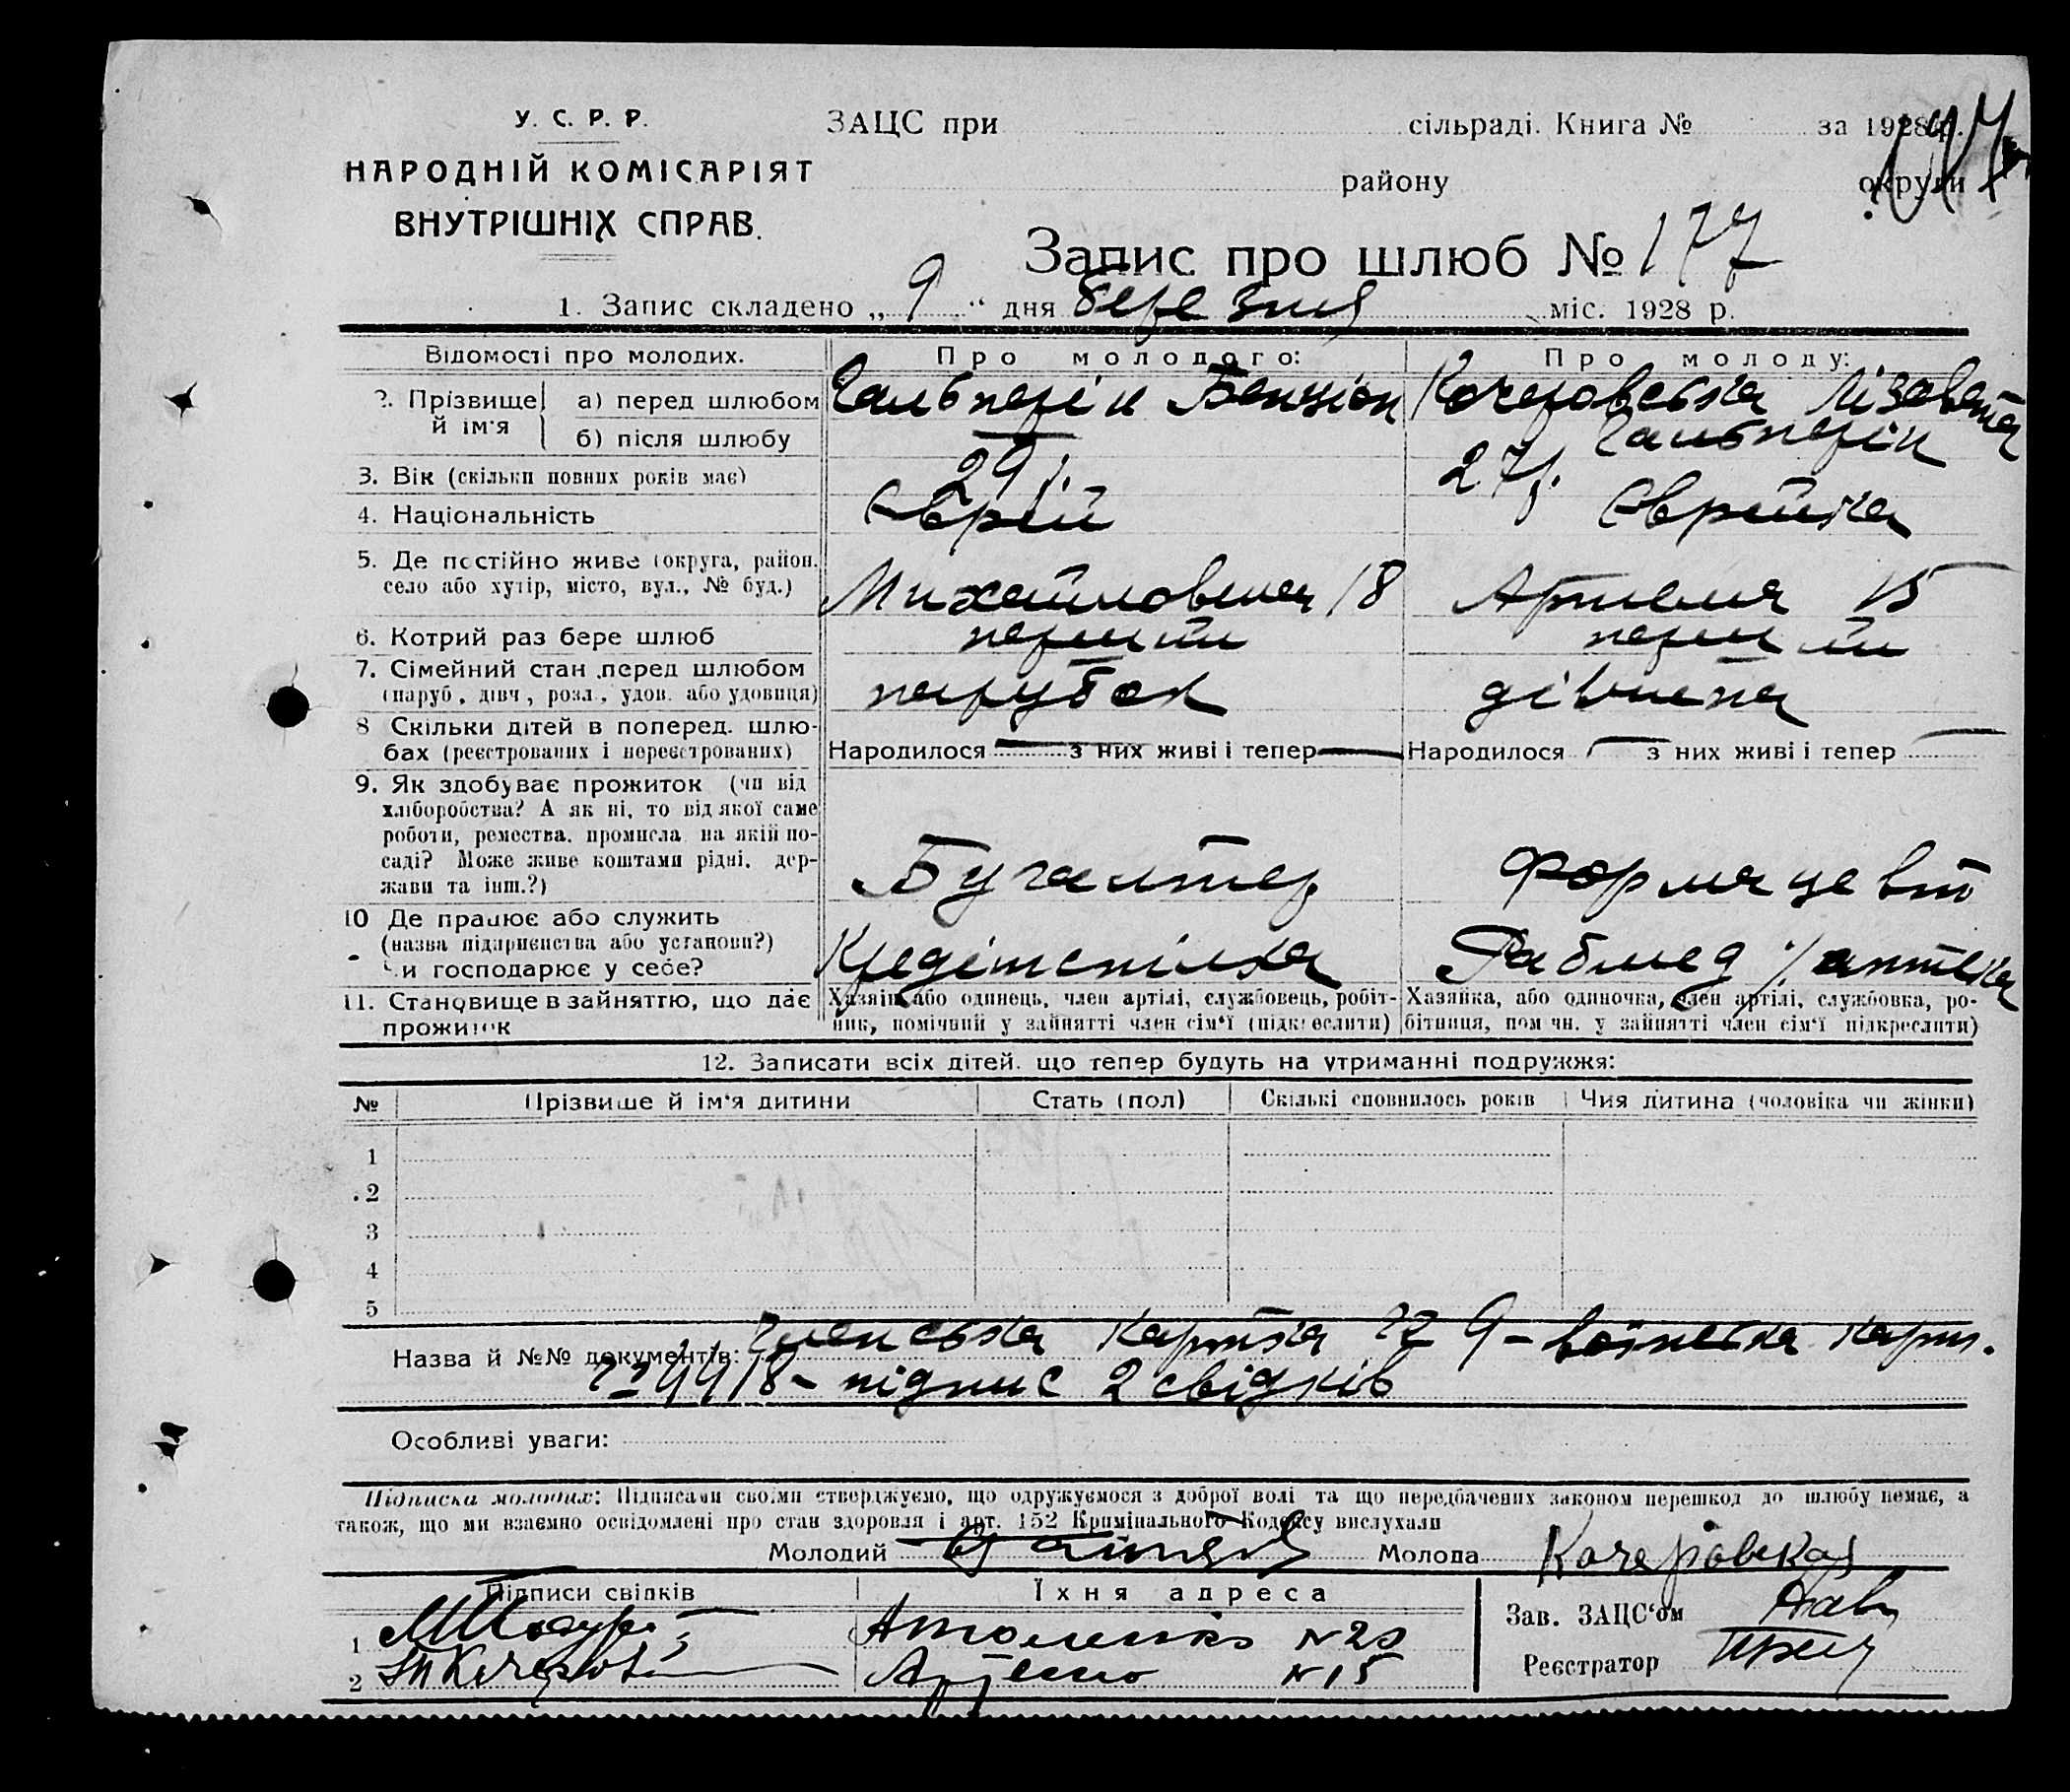 У. С. Р. Р.
НАРОДНІЙ КОМІСАРІЯТ
ВНУТРІШНІХ СПРАВ.
ЗАЦС при сільраді. Книга № за 1928 р.
району округи
Запис про шлюб № 177
1. Запис складено „ 9 “ дня березня міс. 1928 р.
Відомості про молодих. Про молодого: Про молоду:
2. Прізвище й ім'я а) перед шлюбом Гальперін Бенціон Кочеровська Лізавета
б) після шлюбу — Гальперін
3. Вік (скільки повних років має) 29 р. 27 р.
4. Національність Єврей Єврейка
5. Де постійно живе (округа, район, село або хутір, місто, вул., № буд.) Михайловська 18 Артема 15
6. Котрий раз бере шлюб перший перший
7. Сімейний стан перед шлюбом (паруб., дівч., розл., удов. або удовиця) парубок дівчина
8 Скільки дітей в поперед. шлюбах (реєстрованих і нереєстрованих) Народилося — з них живі і тепер — Народилося — з них живі і тепер —
9. Як здобуває прожиток (чи від хліборобства? А як ні, то від якої саме роботи, ремества, промисла, на якій посаді? Може живе коштами рідні, держави та інш.?) Бугалтер Формацевт
10 Де працює або служить (назва підприємства або установи?) Чи господарює у себе? Кредітспілка Рабмед аптека
11. Становище в зайняттю, що дає прожиток
Хазяїн або одинець, член артілі, службовець, робітник, помічний у зайнятті член сім'ї (підкреслити)
Хазяйка, або одиночка, член артілі, службовка, робітниця, пом чн. у зайнятті член сім'ї підкреслити)
12. Записати всіх дітей, що тепер будуть на утриманні подружжя:
№ Прізвище й ім'я дитини Стать (пол) Скількі сповнилось років Чия дитина (чоловіка чи жінки)
1
2
3
4
5
Назва й №№ документів: Членська картка № 9 - воїнська карт.
№ 4418 - підпис 2 свідків
Особливі уваги:
Підписка молодих: Підписами своїми стверджуємо, що одружуємося з доброї волі та що передбачених законом перешкод до шлюбу немає, а
також, що ми взаємно освідомлені про стан здоровля і арт. 152 Кримінального Кодексу вислухали
Молодий Молода Кочеровская
Підписи свідків Їхня адреса
1 № 20
2 № 15
Зав. ЗАЦС'ом
Реєстратор